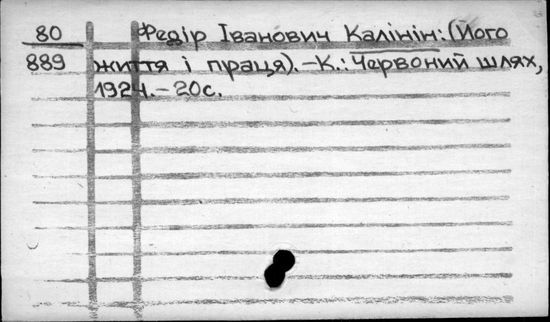 80 Федір Іванович Калінін: (Його
889 життя і праця).-К.: Червоний шлях,
1924.-20с.